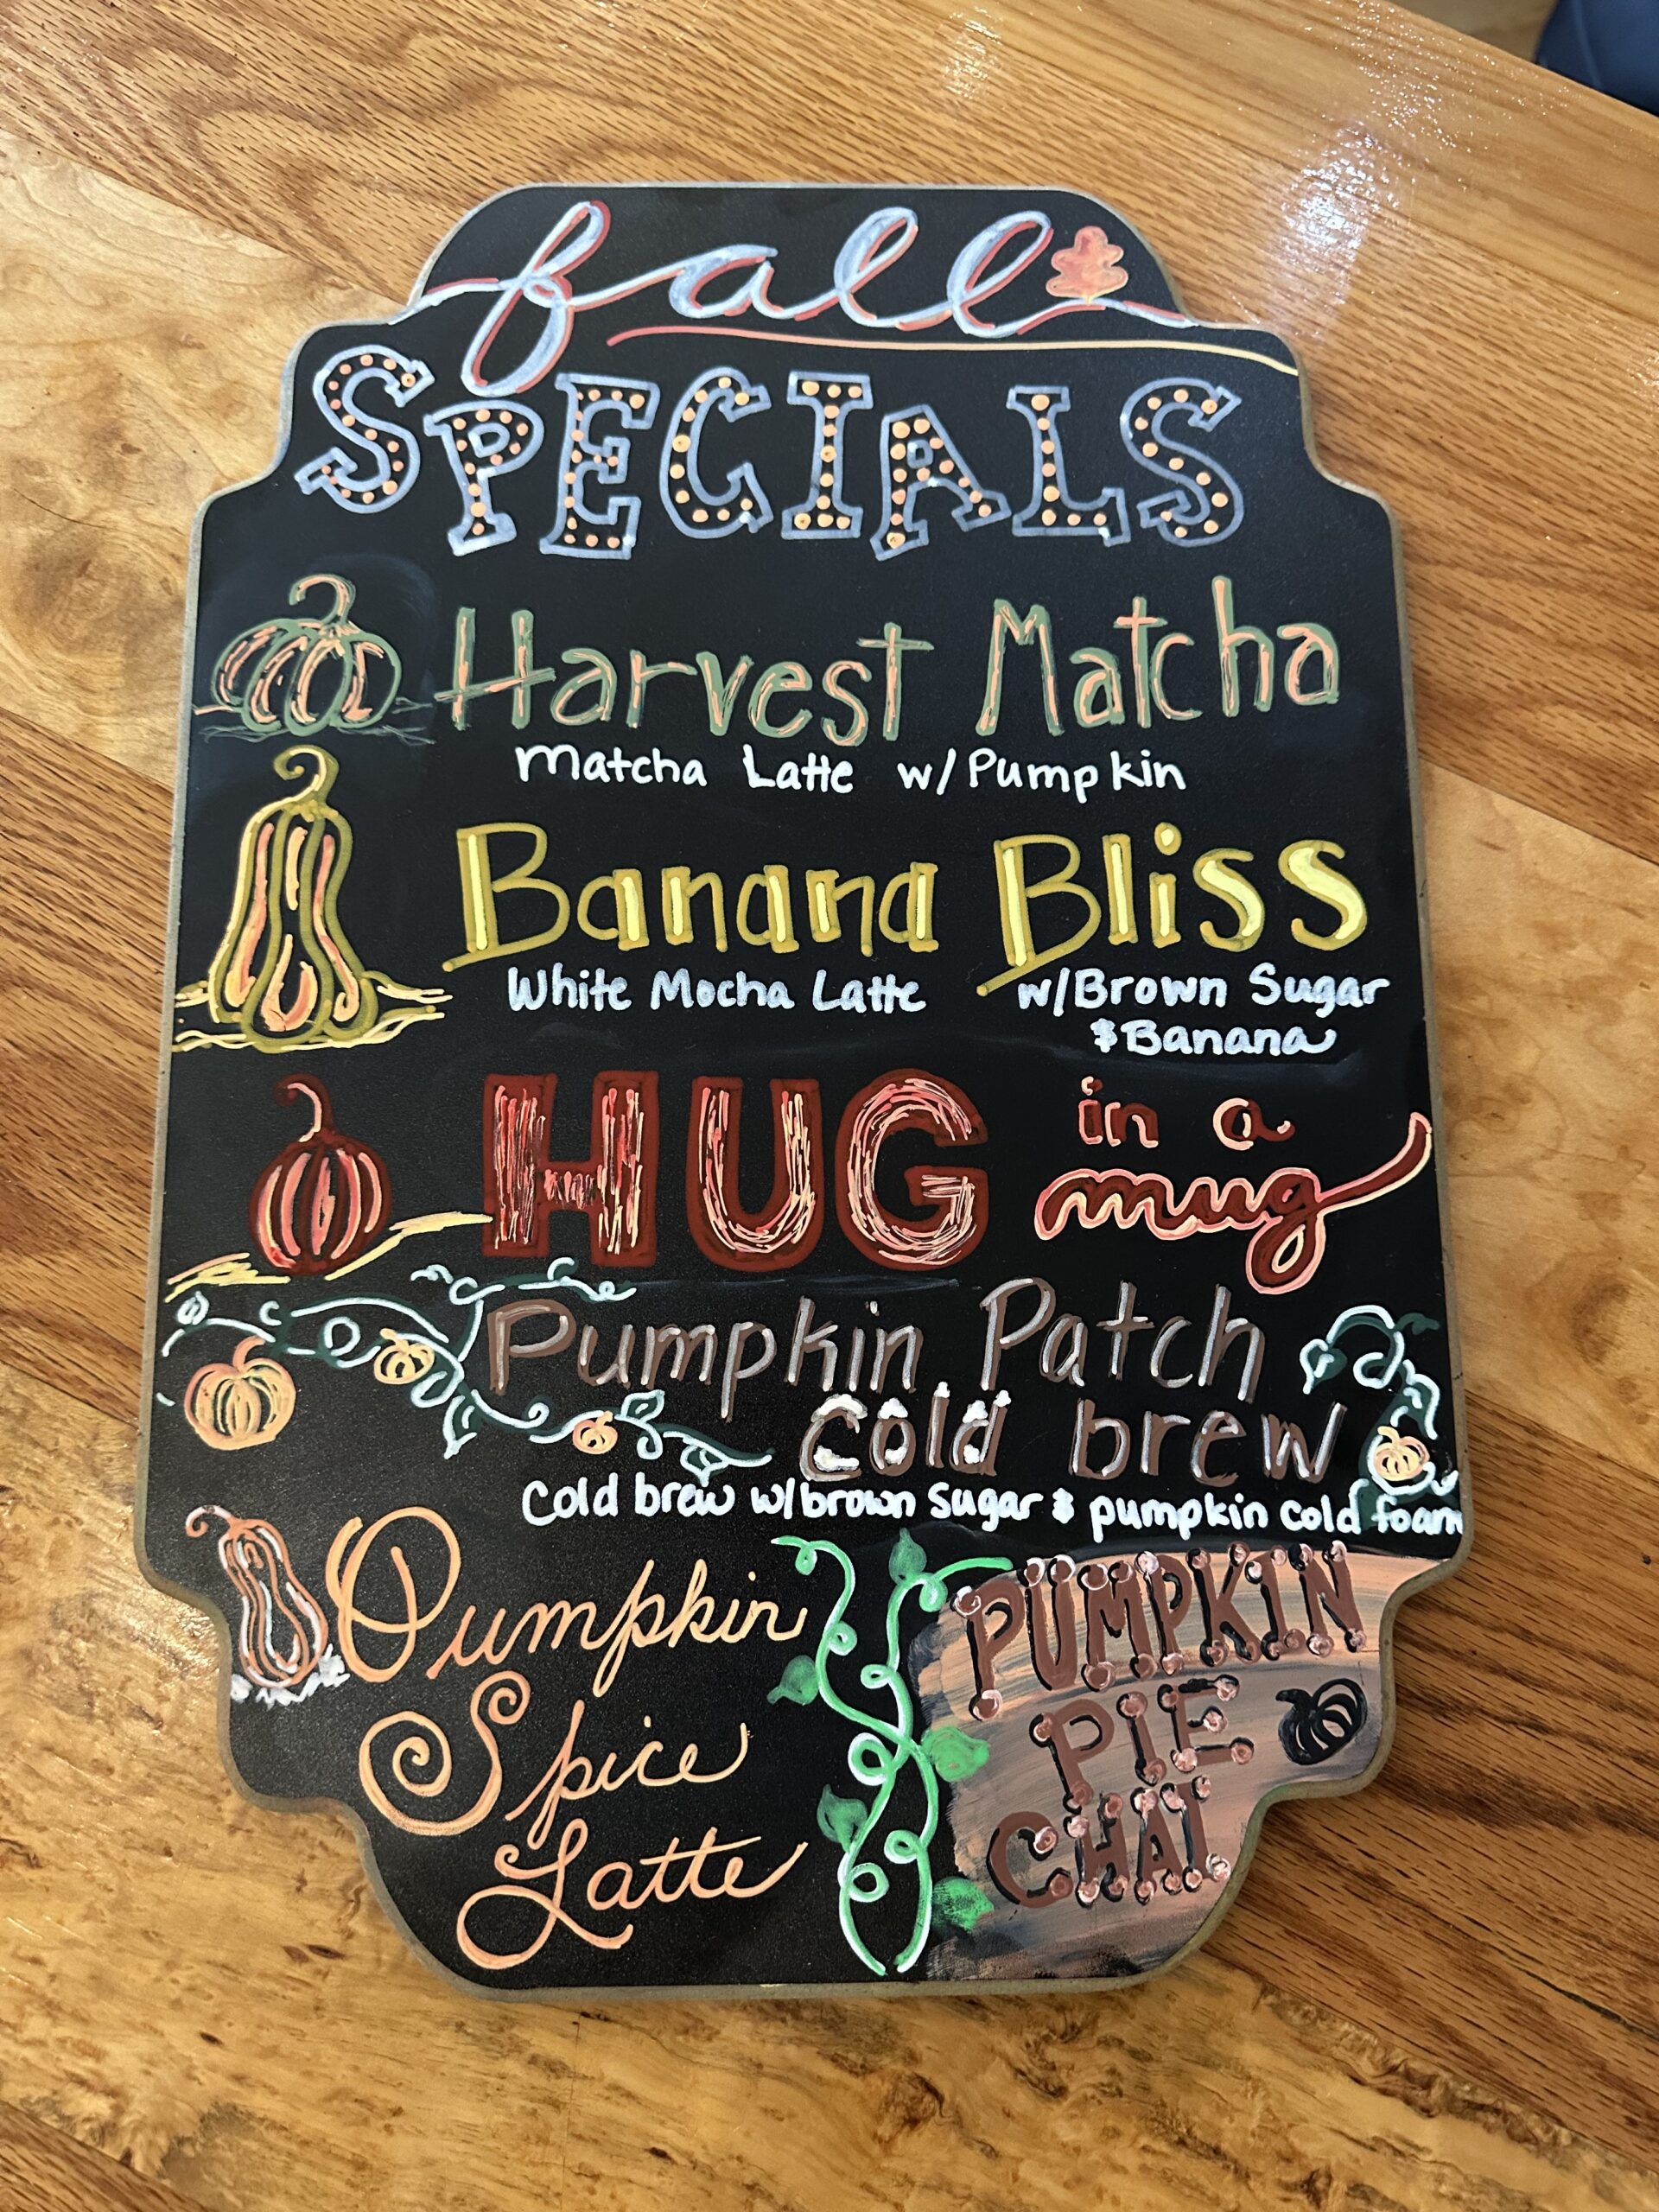 fall
SPECIALS
Harvest Matcha
Matcha Latte w/Pumpkin
Banana Bliss
White Mocha Latte w/Brown Sugar
& Banana
HUG in a
mug
Pumpkin Patch
cold brew
Cold brew w/brown sugar & pumpkin cold foam
Pumpkin
Spice
Latte
PUMPKIN
PIE
CHAI